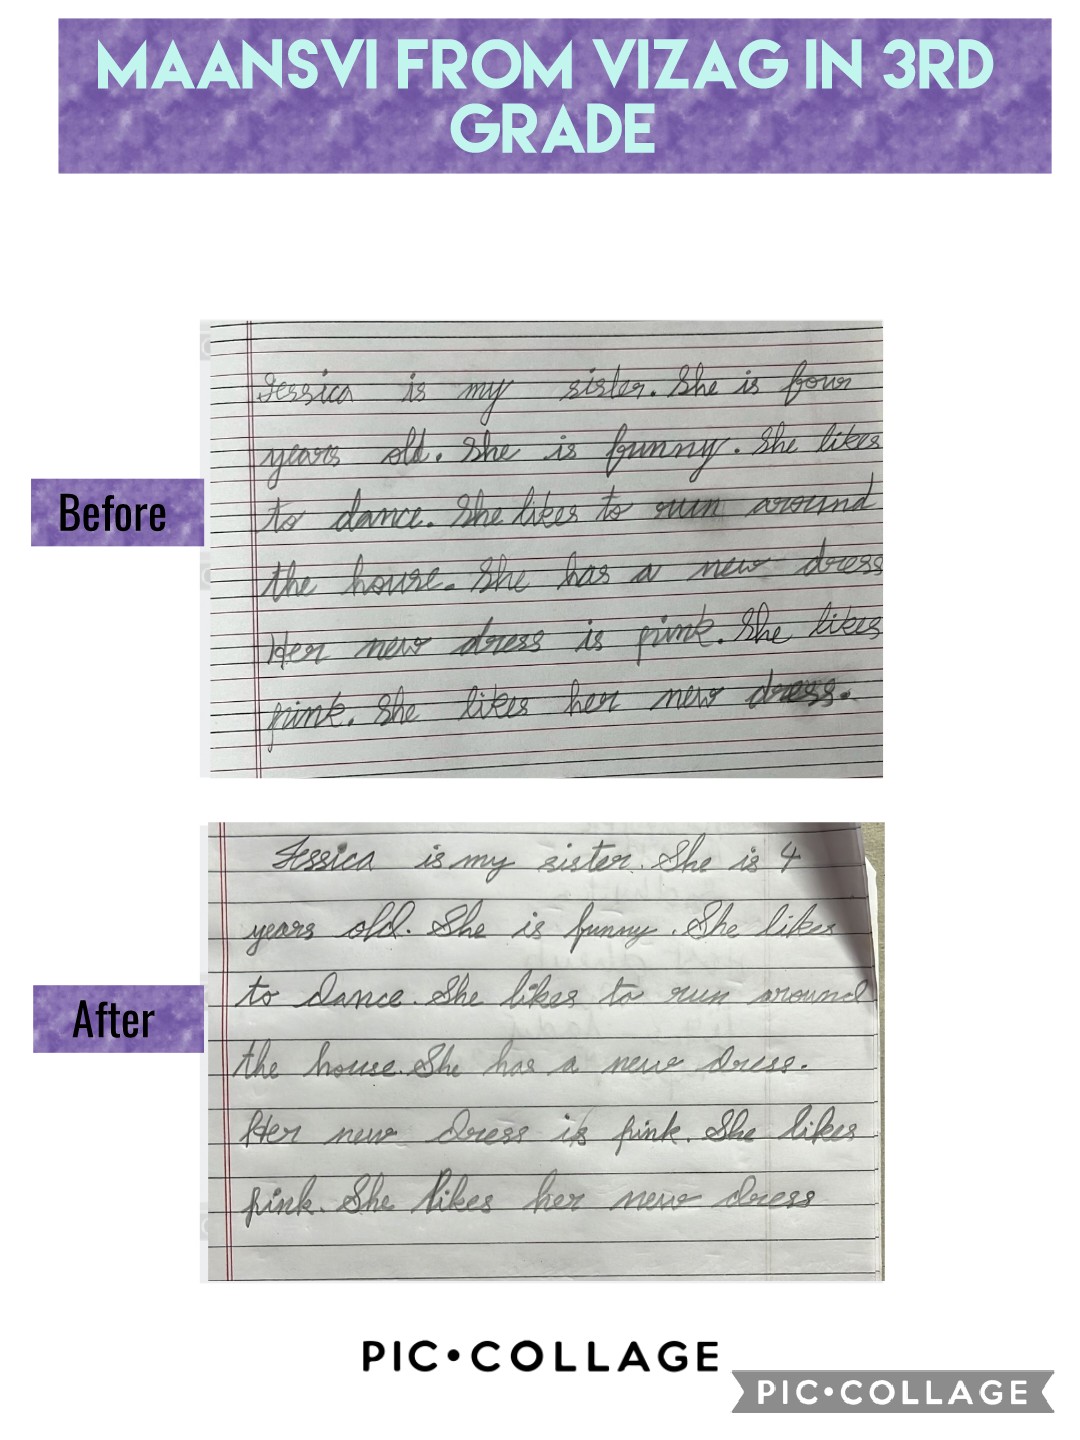 MAANSVI FROM VIZAG IN 3RD
GRADE
Jessica is my sister. She is four
years old. She is funny. She likes
Before
to dance. She likes to run around
the house. She has a new dress
Her new dress is pink. She likes
pink. She likes her new dress.
Jessica is my sister. She is 4
years old. She is funny. She likes
to dance. She likes to run around
After
the house. She has a new dress.
Her new dress is pink. She likes
pink. She likes her new dress
PIC•COLLAGE
PIC•COLLAGE